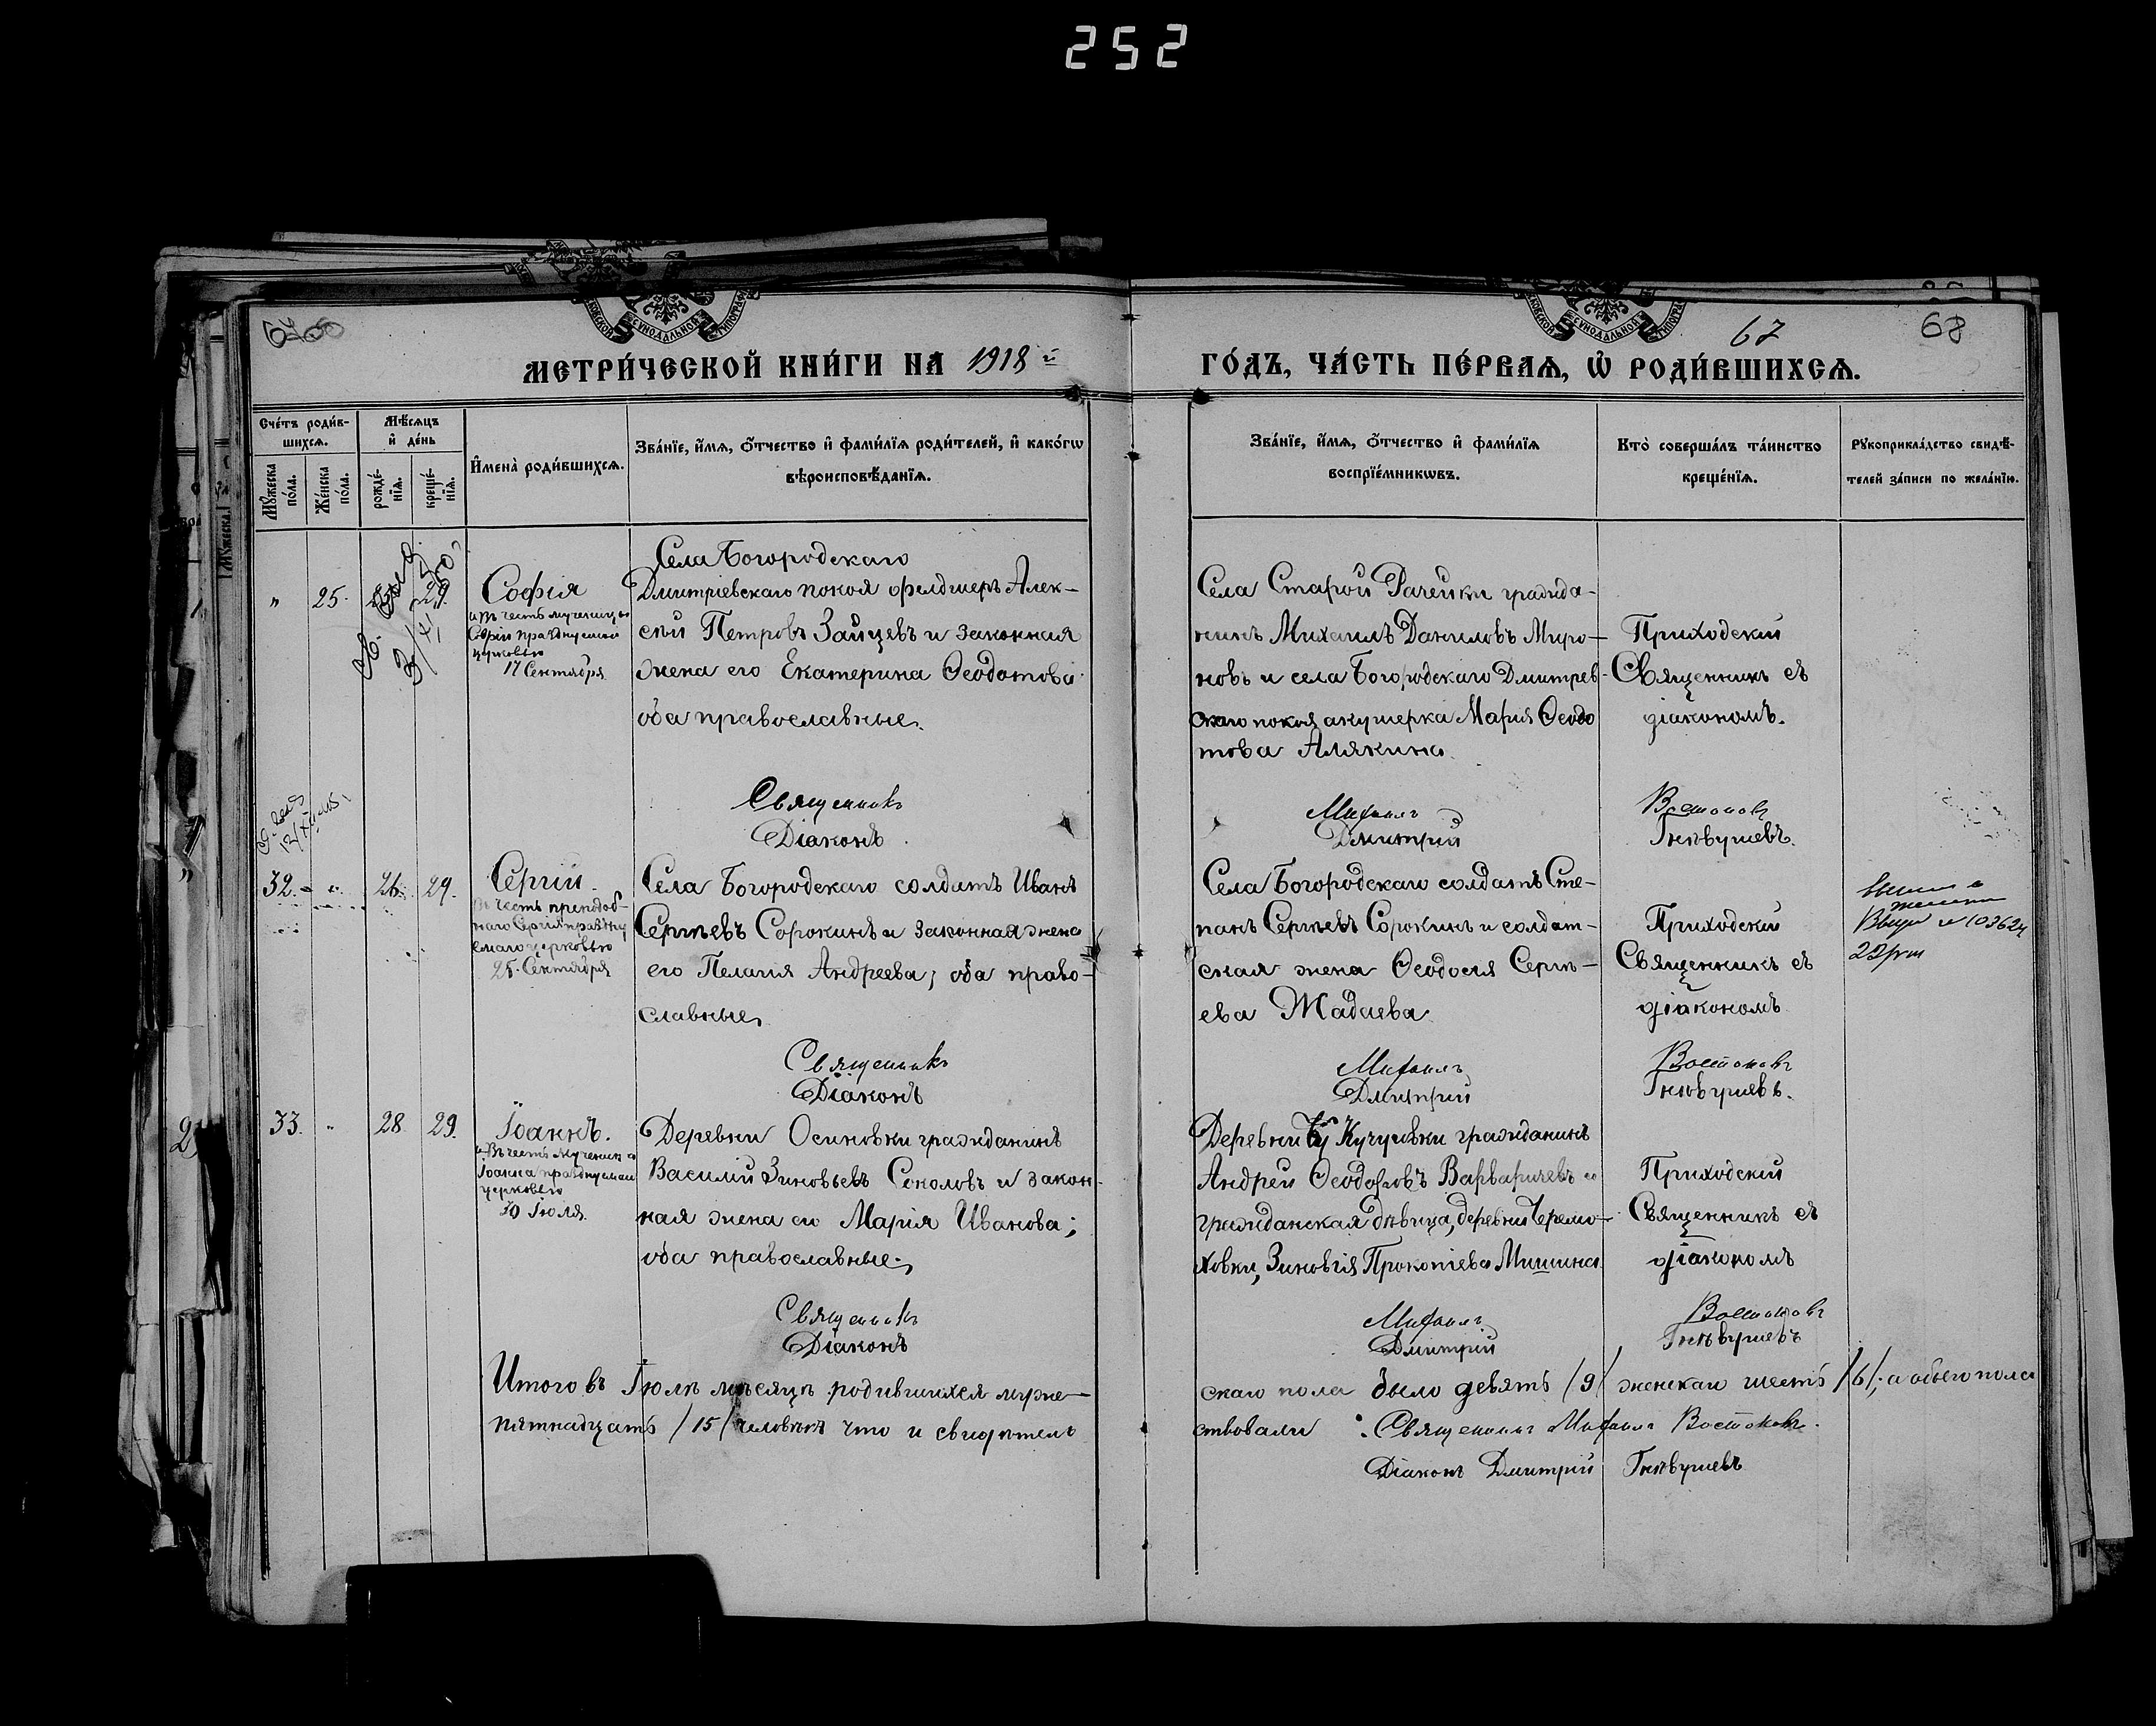 252
67
68
МЕТРИ́ЧЕСКОЙ КНИ́ГИ НА 1918 й
ГО́ДЪ, ЧА́СТЬ ПЕ́РВАѦ, Ѡ҆ РОДИ́ВШИХСѦ.
Сче́тъ роди́в-
шихсѧ.
Мꙋ́жеска по́ла.
Же́нска по́ла.
Мѣ́сѧцъ
и҆ де́нь
рожде́-
нїѧ.
креще́-
нїѧ.
И҆мена̀ роди́вшихсѧ.
Зва́нїе, и҆́мѧ, ѻ҆́тчество и҆ фами́лїѧ роди́телей, и҆ како́гѡ
вѣроисповѣ́данїѧ.
Зва́нїе, и҆́мѧ, ѻ҆́тчество и҆ фами́лїѧ
воспрїе́мникѡвъ.
Кто̀ соверша́лъ та́инство
креще́нїѧ.
Рꙋкоприкла́дство свидѣ́-
телей за́писи по жела́нїю.
" 25. 29.
София
въ честь мученицы
Софіи празднуемой
церковью
17 Сентября
Села Богородскаго
Дмитріевскаго покоя фелдшеръ Алек-
сѣй Петровъ Зайцевъ и законная
жена его Екатерина Ѳеодотова
оба православные.
Села Старой Рачейки гражда-
нинъ Михаилъ Даниловъ Миро-
новъ и села Богородскаго Дмитрев-
скаго покоя акушерка Мария Ѳеодо
това Алякина.
Приходский
Священникъ съ
діакономъ.
Священникъ Михаилъ Востоковъ
Діаконъ Дмитрий Гнѣвушевъ.
32. " 26. 29.
Сергій
въ честь преподоб-
наго Сергия праздну
емаго церковью
25. Сентября
Села Богородскаго солдатъ Иванъ
Сергѣевъ Сорокинъ и законная жена
его Пелагия Андреева; оба право-
славные,
Села Богородскаго солдатъ Сте-
панъ Сергѣевъ Сорокинъ и солдат-
ская жена Ѳеодосия Сергѣ-
ева Жадаева
Приходский
Священникъ съ
діакономъ
Священникъ Михаилъ Востоковъ
Діаконъ Дмитрий Гнѣвушевъ.
33. " 28. 29.
Іоаннъ.
въ честь мученика
Іоанна празднуемаго
церковью
30 Іюля.
Деревни Осиновки гражданинъ
Василий Зиновьевъ Соколовъ и закон-
ная жена его Марія Иванова;
оба православные.
Деревни Кучуовки гражданинъ
Андрей Ѳеодоровъ Варваричевъ и
гражданская дѣвица, деревни Черемо-
ховки, Зиновгія Прокопіева Мишина
Приходский
Священникъ съ
діакономъ
Священникъ Михаилъ Востоковъ
Діаконъ Дмитрий Гнѣвушевъ
Итого въ Іюлѣ мѣсяцѣ родившихся муже-
скаго пола было девять /9/ женскаго шесть /6/; а обоего пола
пятнадцать /15/ человѣкъ что и свидѣтель
ствовали: Священникъ Михаилъ Востоковъ.
Діаконъ Дмитрий Гнѣвушевъ